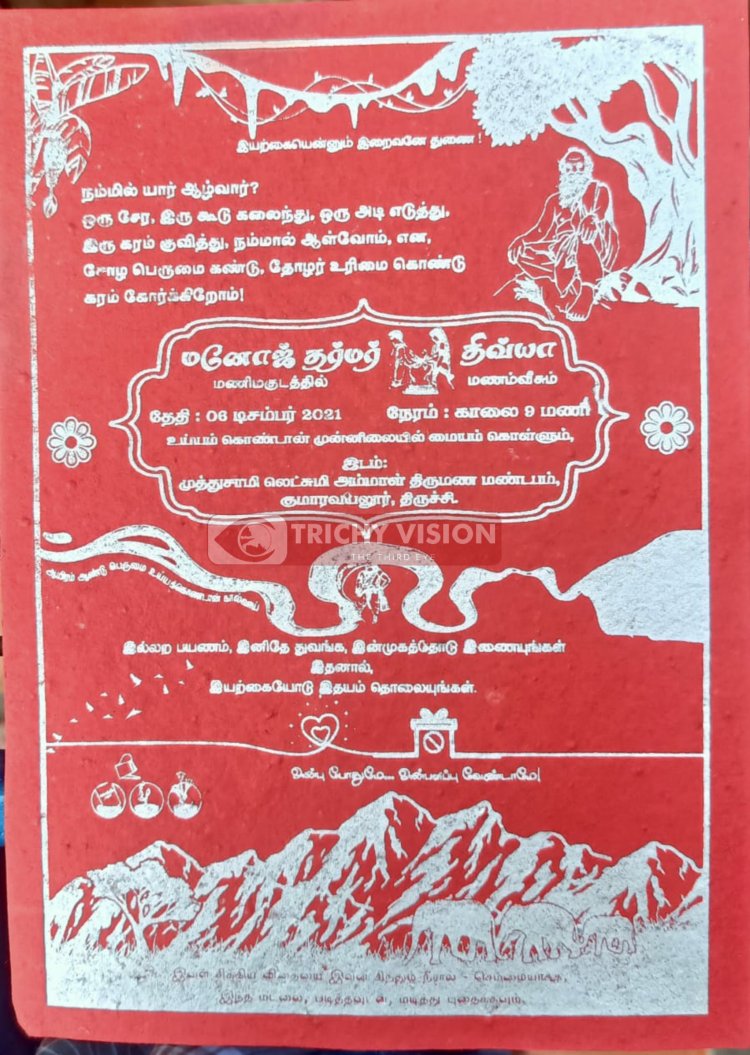 இயற்கையென்னும் இறைவனே துணை !
நம்மில் யார் ஆழ்வார்?
ஒரு சேர, இரு கூடு கலைந்து, ஒரு அடி எடுத்து,
இரு கரம் குவித்து, நம்மால் ஆள்வோம், என,
சோழ பெருமை கண்டு, தோழர் உரிமை கொண்டு
கரம் கோர்க்கிறோம்!
மனோஜ் தர்மர் திவ்யா
மணிமகுடத்தில் மணம்வீசும்
தேதி : 06 டிசம்பர் 2021 நேரம் : காலை 9 மணி
உய்யம் கொண்டான் முன்னிலையில் மையம் கொள்ளும்,
இடம்:
முத்துசாமி லெட்சுமி அம்மாள் திருமண மண்டபம்,
குமாரவயலூர், திருச்சி.
TRICHY VISION
THE THIRD EYE
ஆயிரம் ஆண்டு பெருமை
இல்லற பயணம், இனிதே துவங்க, இன்முகத்தோடு இணையுங்கள்
இதனால்,
இயற்கையோடு இதயம் தொலையுங்கள்.
அன்பு போதுமே... அன்பளிப்பு வேண்டாமே!
இந்த மடலை, படித்தவுடன், மடித்து புதைக்கவும்.